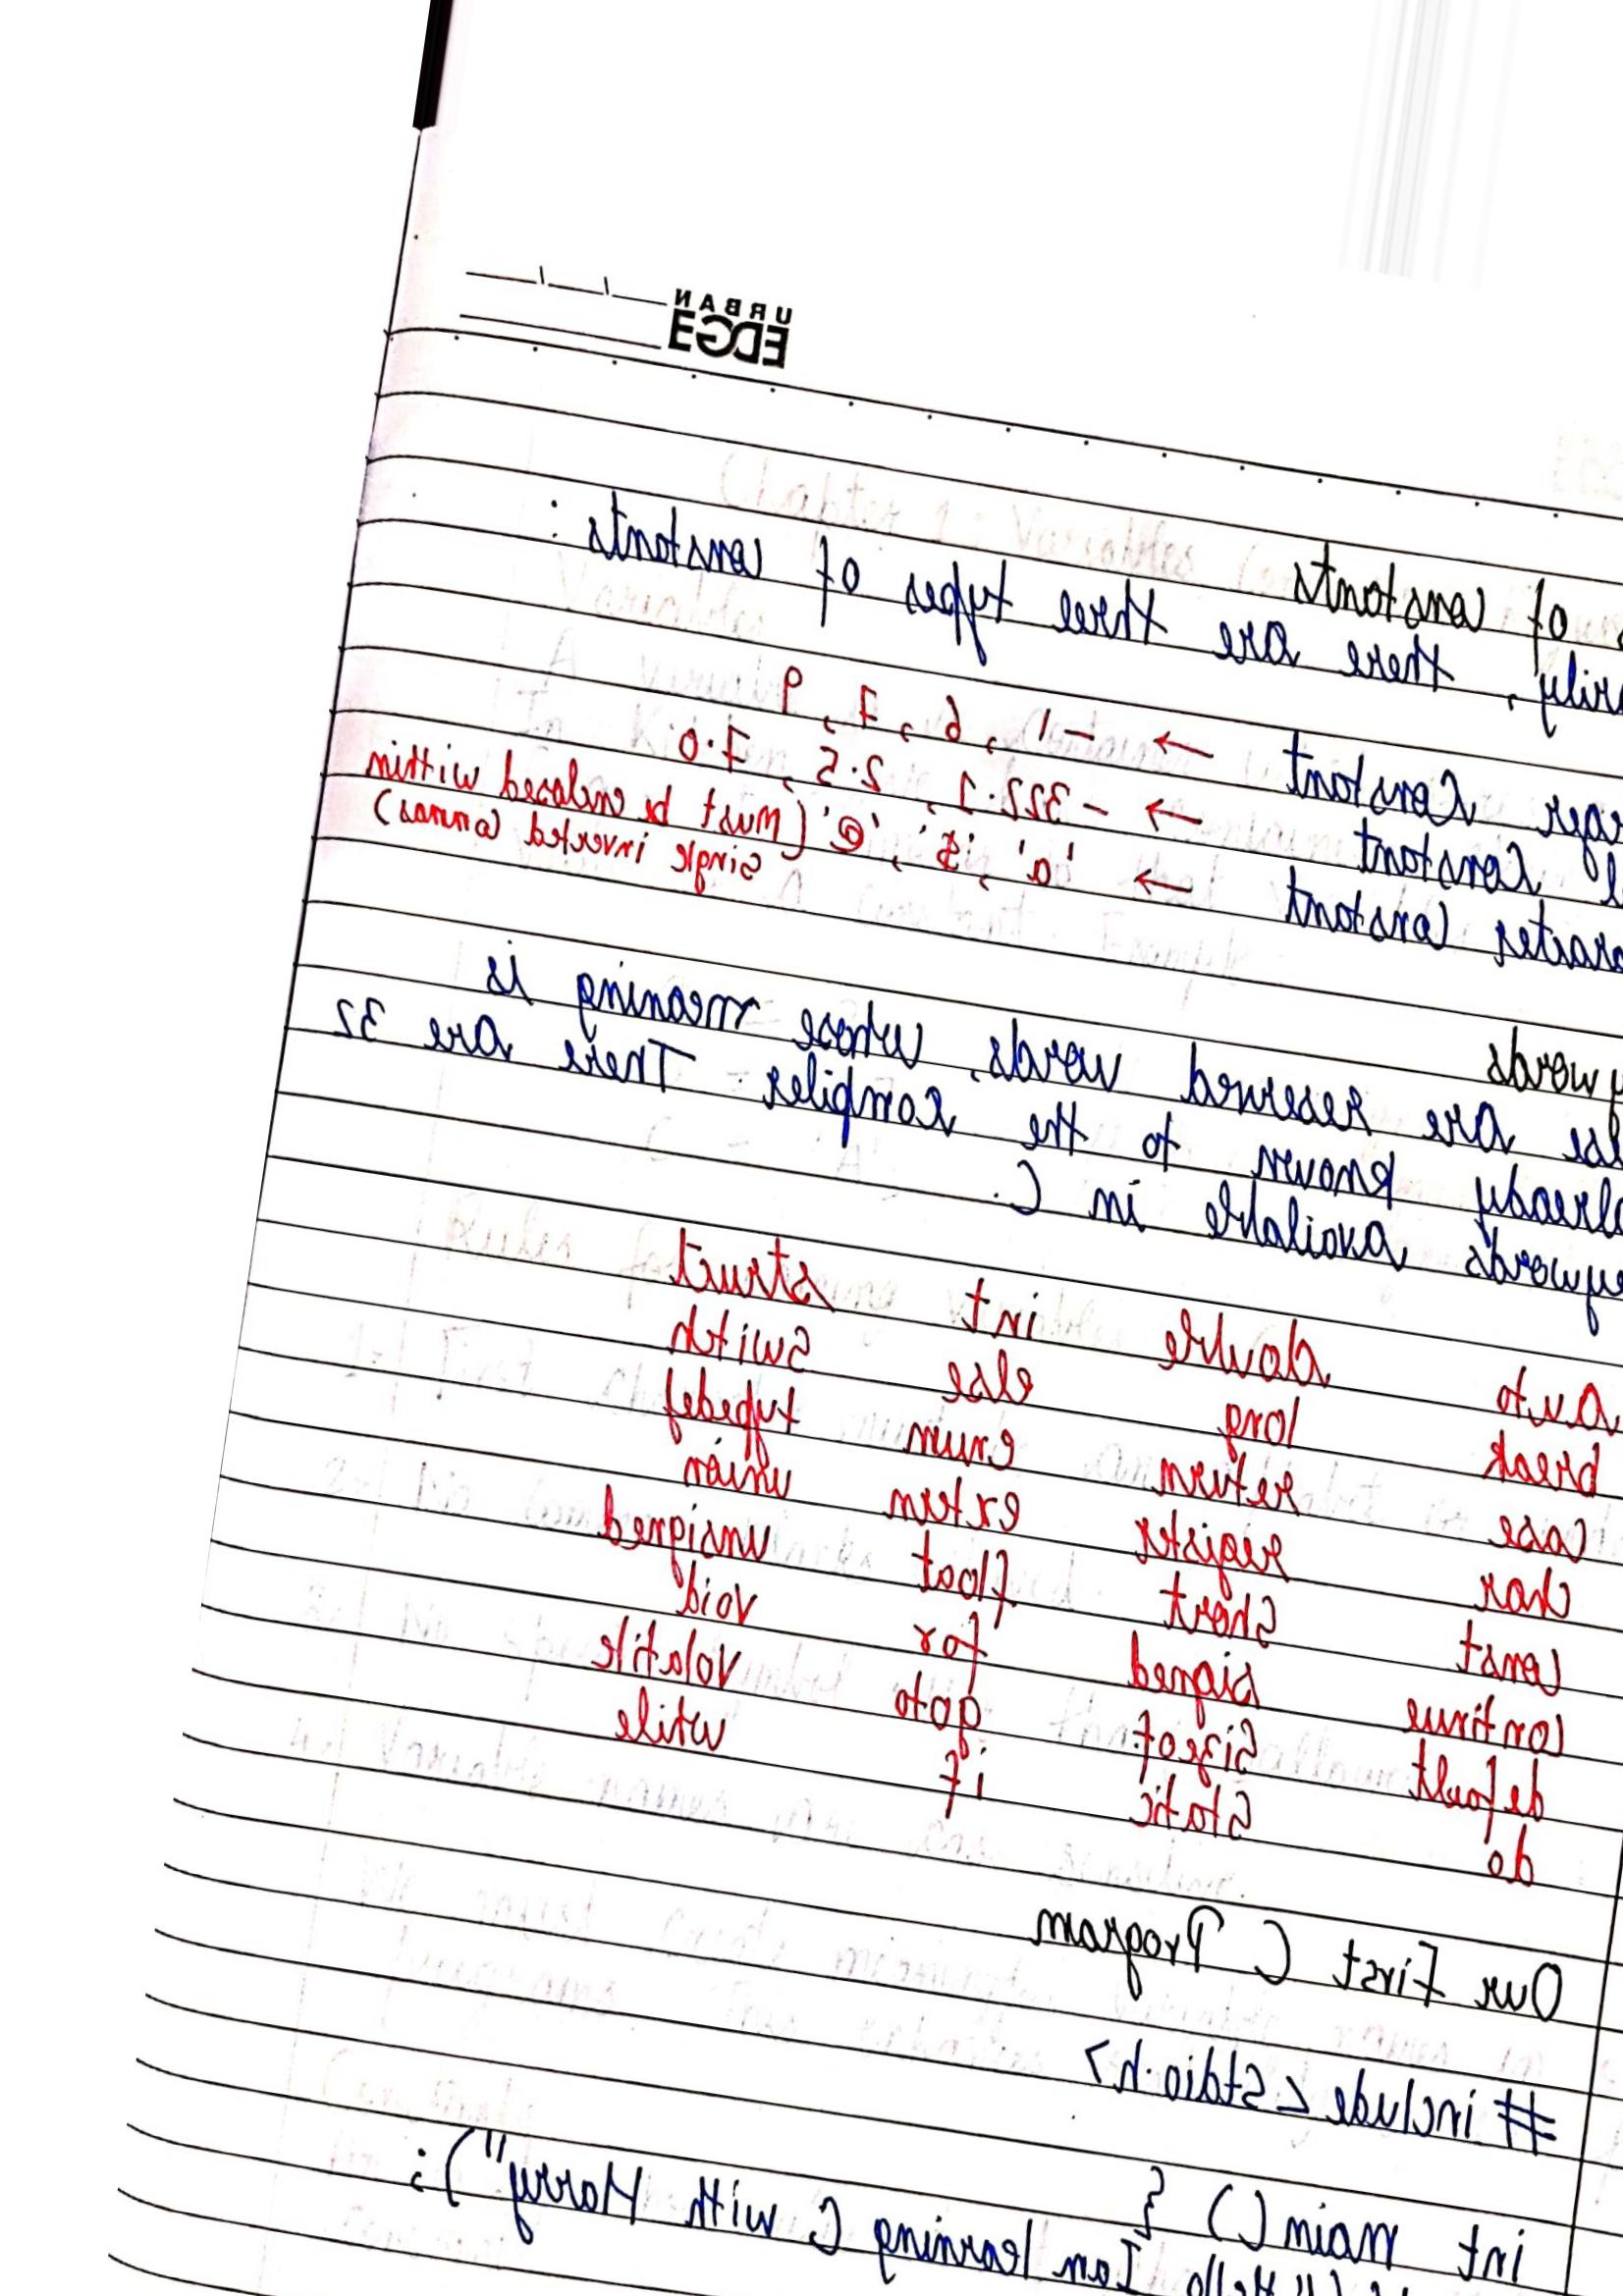 URBAN
EDGE
of constants
there are three types of constants :
Constant → -1, 6, 7, 9
Constant → -322.1, 2.5, 7.0
Constant → 'a', '$', '@' (Must be enclosed within
single inverted commas)
are reserved words, whose meaning is
already known to the compiler. There are 32
available in C.
auto double int struct
break long else switch
case return enum typedef
char register extern union
const short float unsigned
continue signed for void
default sizeof goto volatile
do static if while
Our First C Program
# include <stdio.h>
int main() {
"Hello I am learning C with Harry");